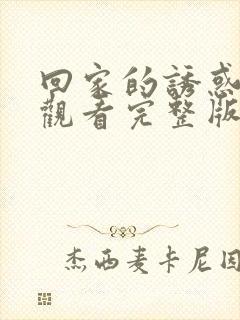 回家的誘惑
觀看完整版
杰西麦卡尼因